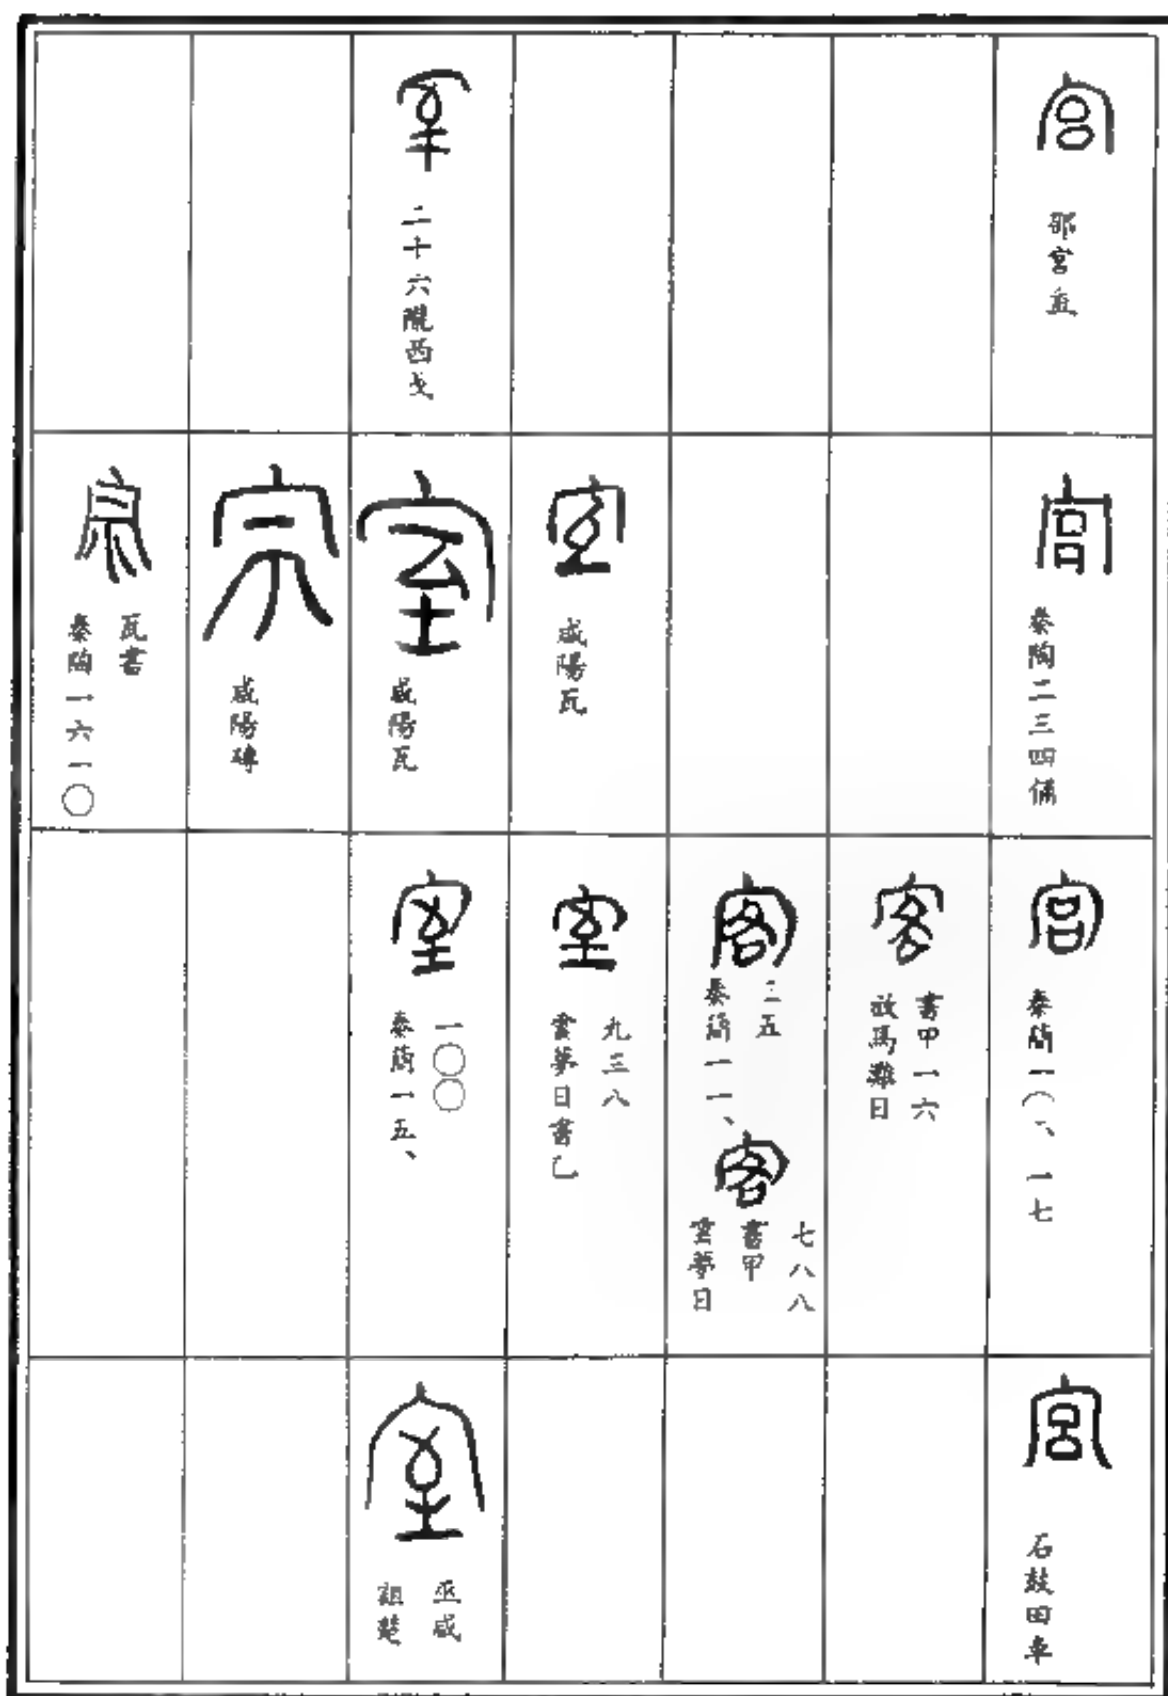 宮
邵宮盉
宮
秦陶二三四俑
宮
秦簡一
一七
宮
石鼓田車
客
書甲一六
放馬灘日
客
秦簡一一、
二五
客
雲夢日
書甲
七八八
室
咸陽瓦
室
雲夢日書乙
九三八
室
二十六隴西戈
室
咸陽瓦
室
秦簡一五、
一〇〇
室
詛楚
巫咸
宗
咸陽磚
宗
瓦書
秦陶一六一〇